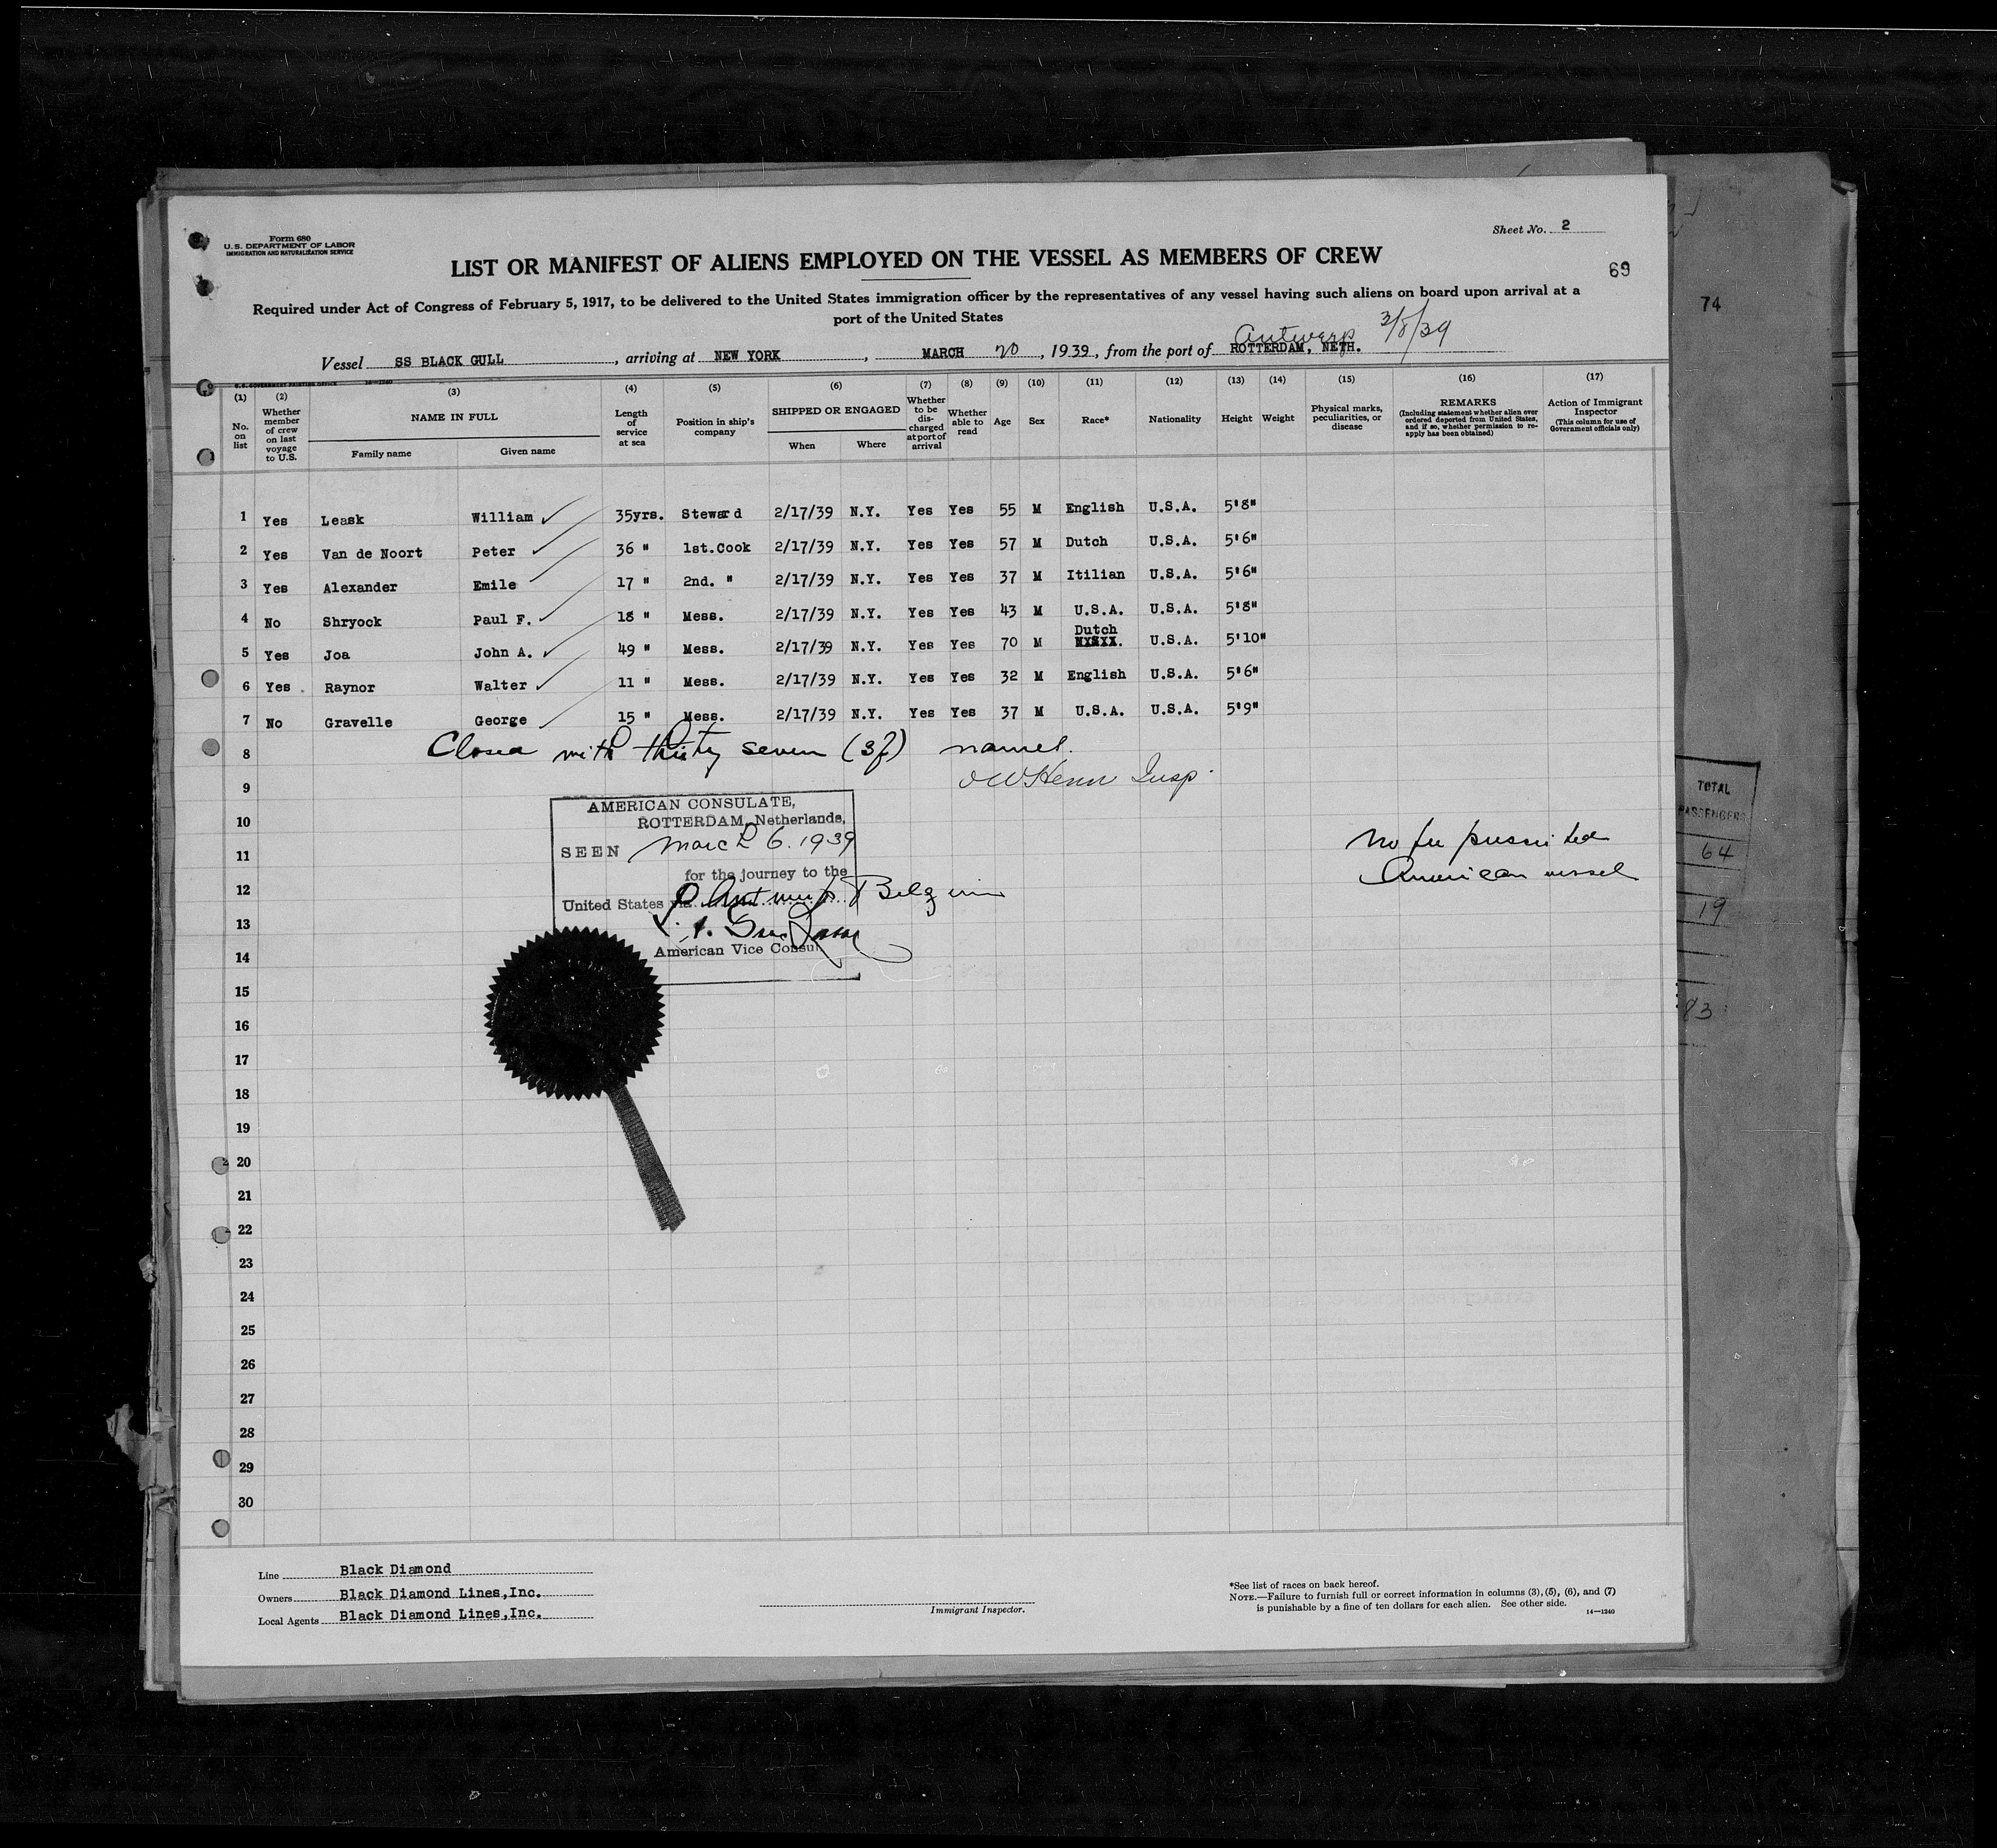 Form 680
U.S. DEPARTMENT OF LABOR
IMMIGRATION AND NATURALIZATION SERVICE
Sheet No. 2
LIST OR MANIFEST OF ALIENS EMPLOYED ON THE VESSEL AS MEMBERS OF CREW
69
74
Required under Act of Congress of February 5, 1917, to be delivered to the United States immigration officer by the representatives of any vessel having such aliens on board upon arrival at a
port of the United States
Antwerp 3/8/39
Vessel SS BLACK GULL, arriving at NEW YORK, MARCH 20, 1939, from the port of ROTTERDAM, NETH.
U.S. GOVERNMENT PRINTING OFFICE 14—1240
(1) (2) (3) (4) (5) (6) (7) (8) (9) (10) (11) (12) (13) (14) (15) (16) (17)
No. on list
Whether member of crew on last voyage to U.S.
NAME IN FULL
Family name
Given name
Length of service at sea
Position in ship's company
SHIPPED OR ENGAGED
When
Where
Whether to be discharged at port of arrival
Whether able to read
Age
Sex
Race*
Nationality
Height
Weight
Physical marks, peculiarities, or disease
REMARKS
(Including statement whether alien ever ordered deported from United States, and if so, whether permission to re-apply has been obtained)
Action of Immigrant Inspector
(This column for use of Government officials only)
1 Yes Leask William 35yrs. Steward 2/17/39 N.Y. Yes Yes 55 M English U.S.A. 5'8"
2 Yes Van de Noort Peter 36 " 1st.Cook 2/17/39 N.Y. Yes Yes 57 M Dutch U.S.A. 5'6"
3 Yes Alexander Emile 17 " 2nd. " 2/17/39 N.Y. Yes Yes 37 M Itilian U.S.A. 5'6"
4 No Shryock Paul F. 18 " Mess. 2/17/39 N.Y. Yes Yes 43 M U.S.A. U.S.A. 5'8"
5 Yes Joa John A. 49 " Mess. 2/17/39 N.Y. Yes Yes 70 M Dutch U.S.A. 5'10"
6 Yes Raynor Walter 11 " Mess. 2/17/39 N.Y. Yes Yes 32 M English U.S.A. 5'6"
7 No Gravelle George 15 " Mess. 2/17/39 N.Y. Yes Yes 37 M U.S.A. U.S.A. 5'9"
8 Closed with thirty seven (37) names.
9 Insp.
10
11
12
13
14
15
16
17
18
19
20
21
22
23
24
25
26
27
28
29
30
AMERICAN CONSULATE,
ROTTERDAM, Netherlands,
SEEN March 6. 1939
for the journey to the
United States via Antwerp Belgium
American Vice Consul
No fee prescribed
American vessel
TOTAL
PASSENGERS
64
19
83
Line Black Diamond
Owners Black Diamond Lines,Inc.
Local Agents Black Diamond Lines,Inc.
Immigrant Inspector.
*See list of races on back hereof.
NOTE.—Failure to furnish full or correct information in columns (3), (5), (6), and (7)
is punishable by a fine of ten dollars for each alien. See other side.
14—1240